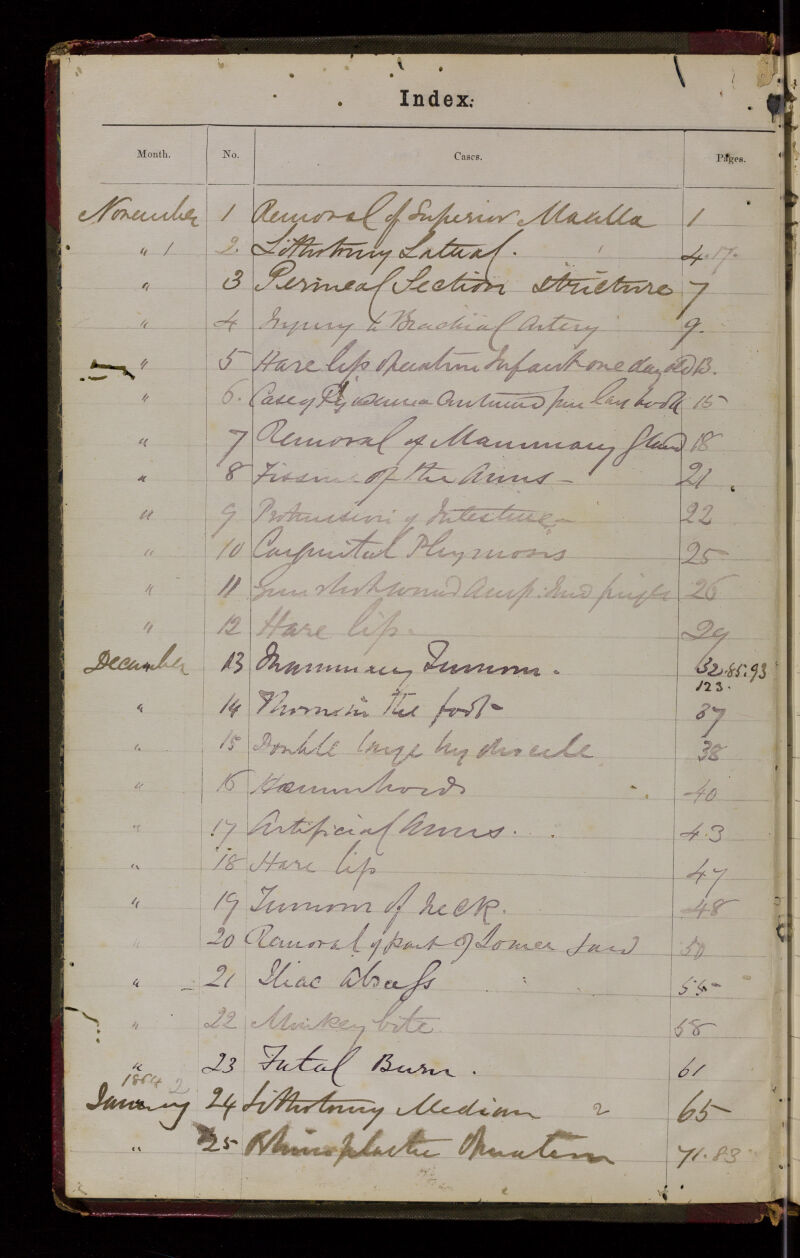 Index.
Month. No. Cases. Pages.
November 1 Removal of Superior Maxilla 1
" 1 2. Lithotomy Lateral. 4.17.
" 3 Perineal Section Stricture 7
" 4 Injury to Brachial Artery 9.
" 5 Hare lip operation Infant one day old 13.
" 6. Case of 15
" 7 Removal of Mammary Gland 18
" 8 Fissure of the Anus - 21
" 9 Protrusion of Intestine - 22
" 10 Congenital Phymosis 25
" 11 Gun shot wound Amp: finger 26
" 12 Hare lip. 29
December 13 Mammary Tumour. 32.85.93
123.
" 14 Thorns in the foot 37
" 15 Double large hydrocele 38
" 16 Haemorrhoids 40
" 17 Artificial Anus. 43
" 18 Hare lip 47
" 19 Tumour of Neck. 48
" 20 Removal of part of Lower Jaw 50
" 21 Iliac Abscess 55
" 22 Monkey bite 58
" 23 Fatal Burn. 61
1864
January 24 Lithotomy Median 2 65
" 25 Rhinoplastic Operation 71.83